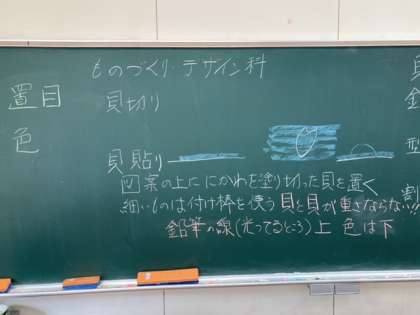 ものづくり・デザイン科
置目
色
貝切り
貝貼り
図案の上ににかわを塗り切った貝を置く
細いものは付け棒を使う 貝と貝が重さならない
鉛筆の線(光ってるところ)上 色は下
貝
型
割